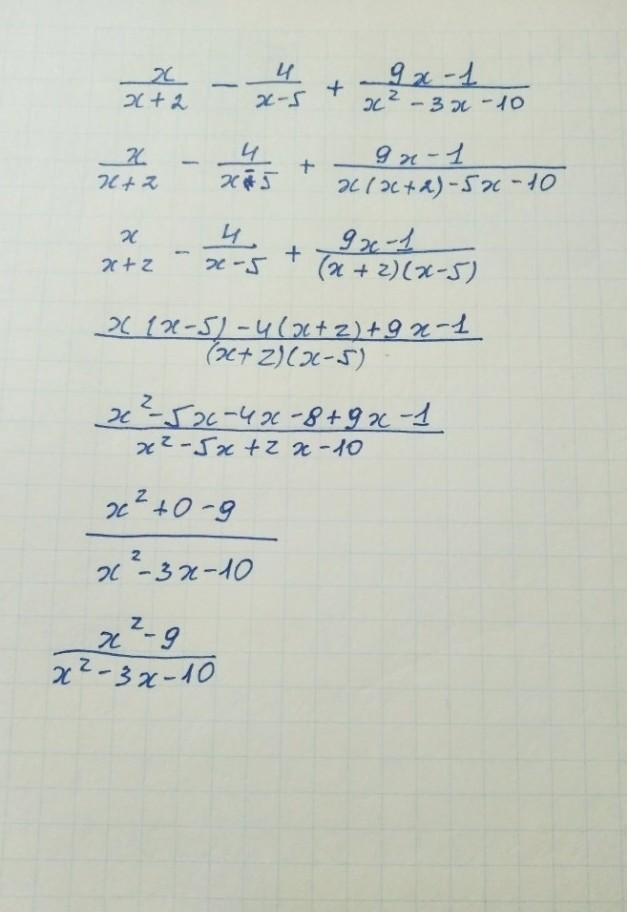 x/(x+2) - 4/(x-5) + (9x-1)/(x² - 3x - 10)
x/(x+2) - 4/(x-5) + (9x-1)/(x(x+2)-5x-10)
x/(x+2) - 4/(x-5) + (9x-1)/((x+2)(x-5))
(x(x-5)-4(x+2)+9x-1)/((x+2)(x-5))
(x²-5x-4x-8+9x-1)/(x²-5x+2x-10)
(x²+0-9)/(x²-3x-10)
(x²-9)/(x²-3x-10)